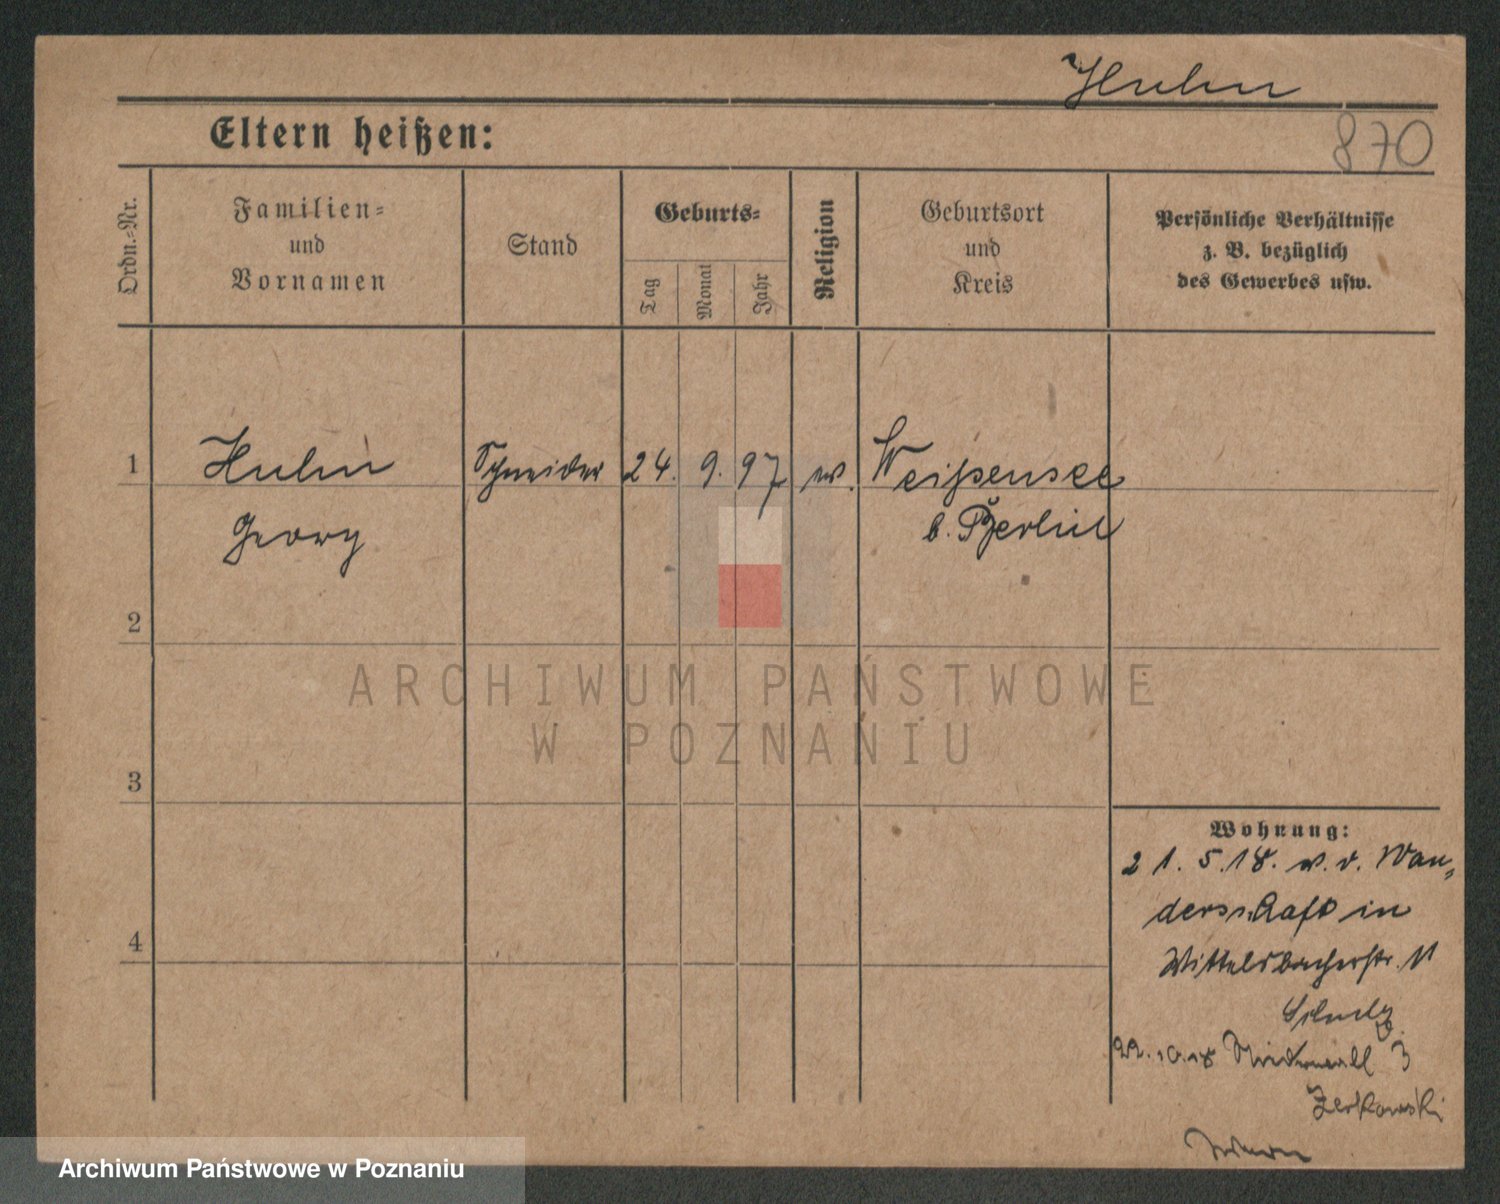 Huhn
870
Eltern heißen:
Ordn.-Nr.
Familien-
und
Vornamen
Stand
Geburts-
Tag
Monat
Jahr
Religion
Geburtsort
und
Kreis
Persönliche Verhältnisse
z. B. bezüglich
des Gewerbes usw.
1
Huhn
Georg
Schneider
24. 9. 97
ev.
Weißensee
b. Berlin
2
3
4
Wohnung:
21. 5. 18. v. d. Wan-
derschaft in
Wittelsbacherstr. 11
Schulz
22.10.18 Niederwall 3
Zerkowski
ARCHIWUM PAŃSTWOWE
W POZNANIU
Archiwum Państwowe w Poznaniu